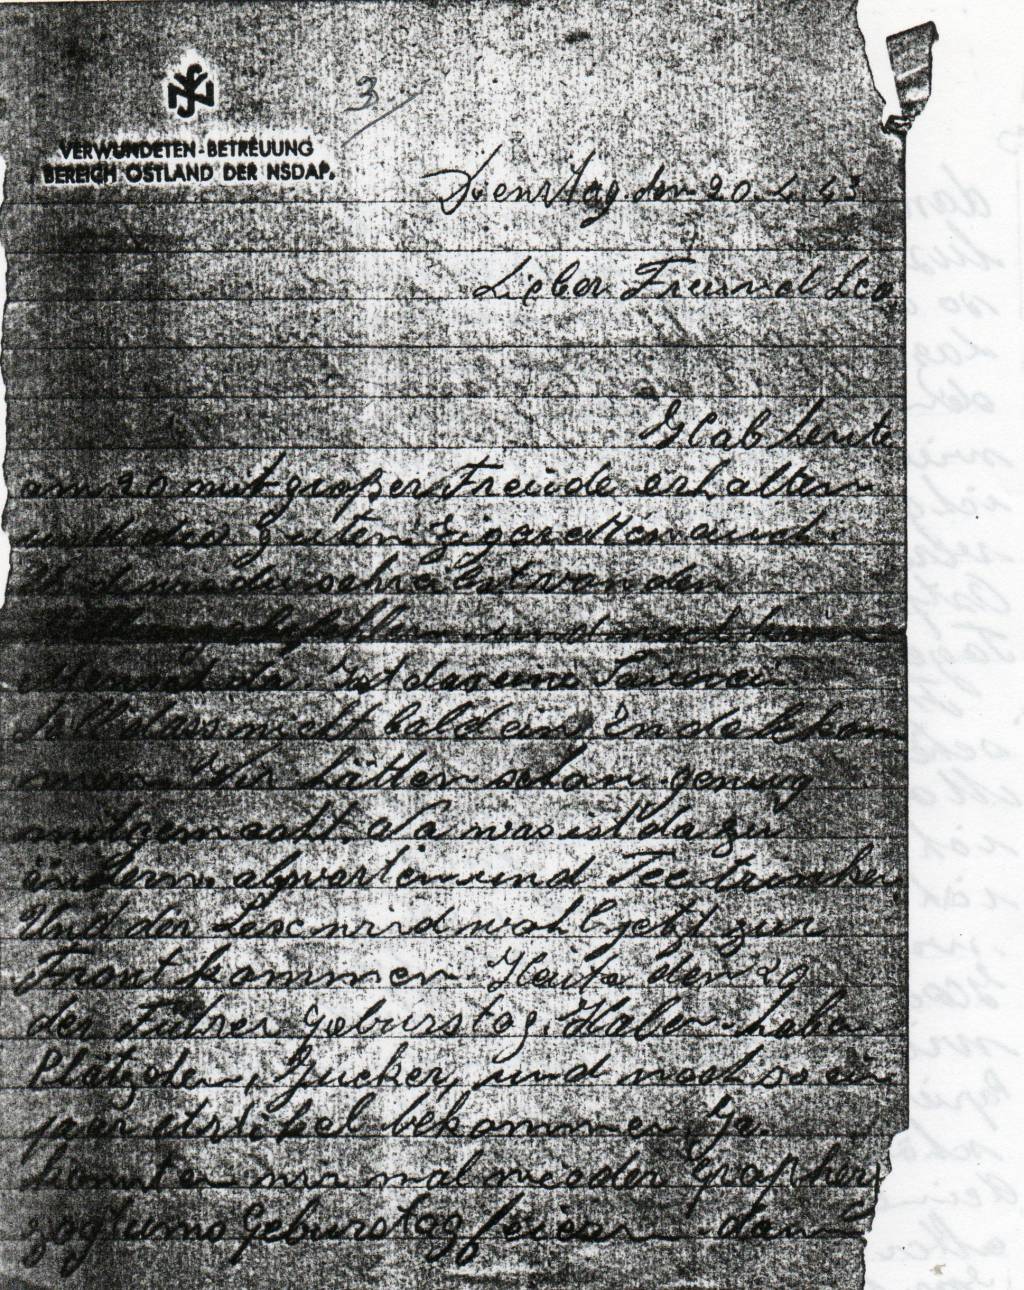 3
VERWUNDETEN-BETREUUNG
BEREICH OSTLAND DER NSDAP.
Dienstag den 20.4.43
Lieber Freund Leo
Hab heute
am 20 mit großer Freude erhalten
und die guten Zigaretten auch.
Und
und noch kein
da Ist das eine
dass nicht bald ein Ende kom
men. Wir hätten schon genug
mitgemacht. Na was ist da zu
ändern. abwarten und Tee trinken
Und der Leo wird wohl jetzt zur
Front kommen. Heute den 20
der Führer Geburstag. Haben
Plätzchen, Zucker, und noch so ein
paar Artikel bekommen. Ja.
konnten wir mal wieder Graßher
zogtums Geburstag feiern dann